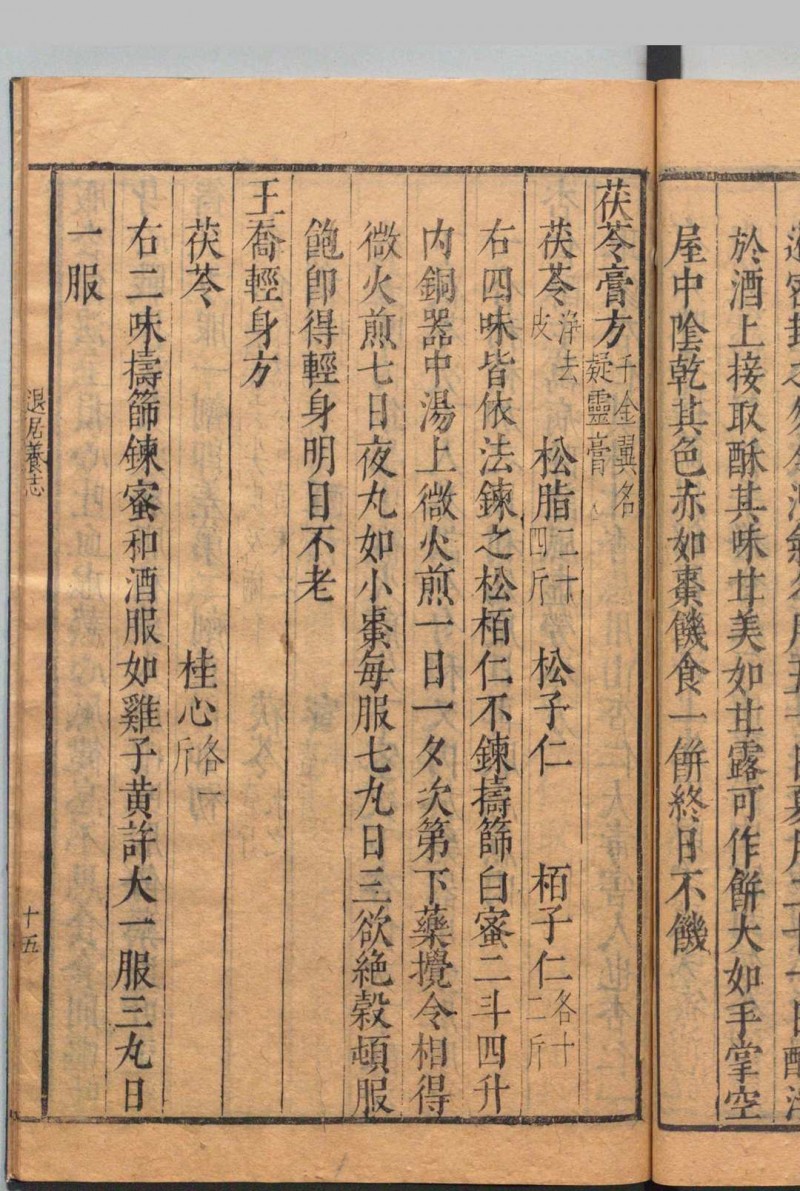 於酒上接取酥其味甘美如甘露可作餅大如手掌空
屋中陰乾其色赤如棗饑食一餅終日不饑
茯苓膏方千金翼名凝靈膏
茯苓淨去皮 松脂二十四斤 松子仁 栢子仁各十二斤
右四味皆依法鍊之松栢仁不鍊擣篩白蜜二斗四升
內銅器中湯上微火煎一日一夕次第下藥攪令相得
微火煎七日夜丸如小棗每服七丸日三欲絶穀頓服
飽卽得輕身明目不老
王喬輕身方
茯苓 桂心各一斤
右二味擣篩鍊蜜和酒服如雞子黄許大一服三丸日
一服
退居養志
十五